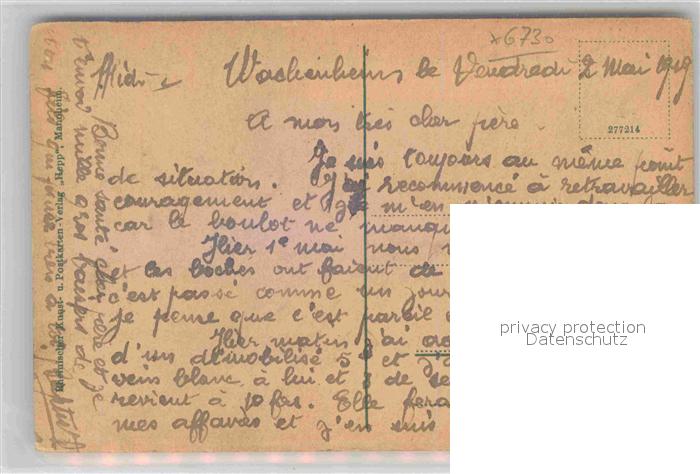 *6730
Midi
Wachenheim le Vendredi 2 Mai 1919
277214
A mon très cher père.
Je suis toujours au même point
de situation. J'ai recommencé à retravailler
couragement et je m'en
car le boulot ne manqu
Hier 1e mai nous
et les boches ont faient de
c'est passé comme un jour
je pense que c'est pareil
Hier matin j'ai
d'un démobilisé 5 et
vein blanc à lui et 3 de
revient à 10 frs. Elle fera
mes affaires et j'en suis
Bonne santé cher père et je
t'envoi mille gros baisers de
ton fils qui
Rheinischer Kunst- u. Postkarten-Verlag „Hepp", Mannheim.
privacy protection
Datenschutz